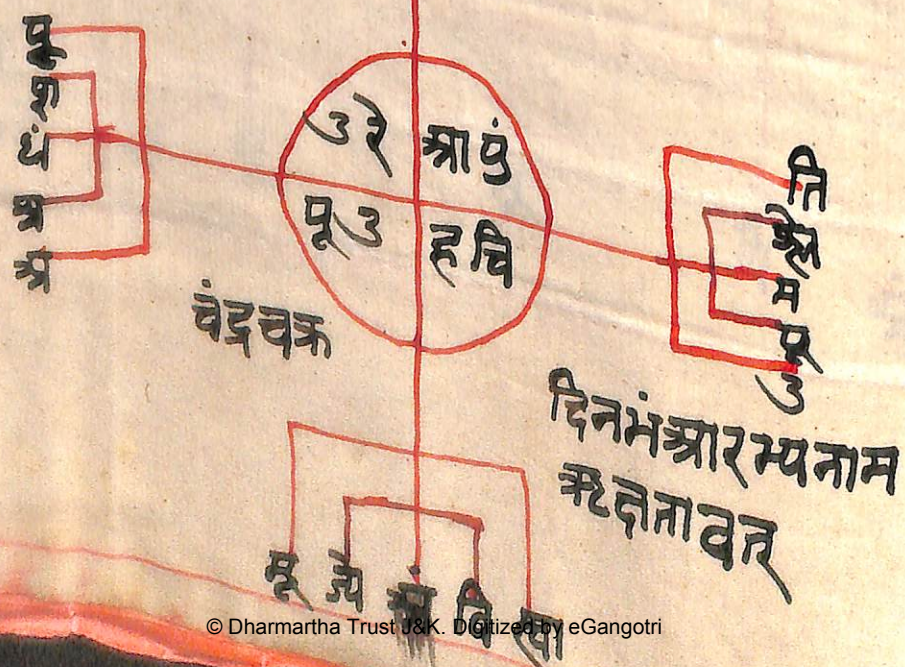 पू
श
धं
श्र
अ
उ रे
आ पुं
पू उ
ह चि
ति
श्ले
म
पू
उ
चंद्रचक्र
दिनभं आरभ्य नाम
ऋक्षं तावत्
मू ज्ये अं वि स्वा
© Dharmartha Trust J&K. Digitized by eGangotri